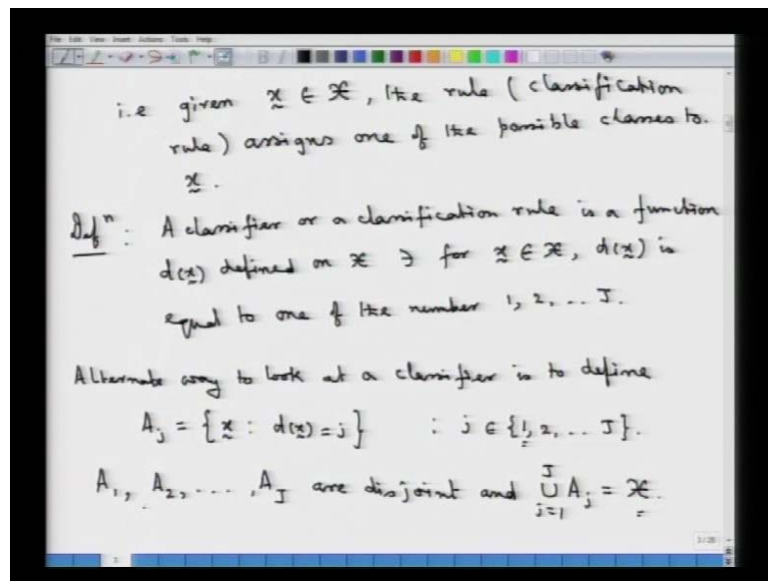 File Edit View Insert Actions Tools Help
i.e given x̰ ∈ 𝒳, the rule (classification
rule) assigns one of the possible classes to
x̰.
Defⁿ: A classifier or a classification rule is a function
d(x̰) defined on 𝒳 ∋ for x̰ ∈ 𝒳, d(x̰) is
equal to one of the number 1, 2, ... J.
Alternate way to look at a classifier is to define
A_j = {x̰ : d(x̰) = j} : j ∈ {1, 2, ... J}.
A₁, A₂, ...., A_J are disjoint and ⋃_{j=1}^{J} A_j = 𝒳.